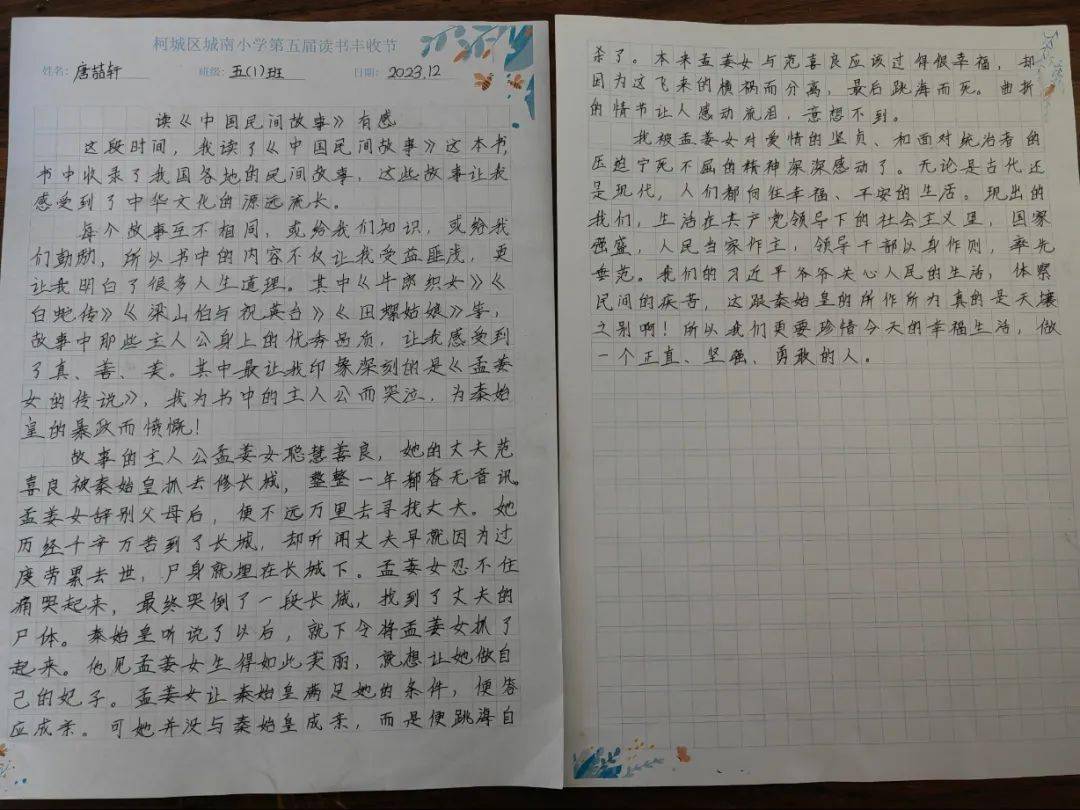 柯城区城南小学第五届读书丰收节
姓名：唐喆轩 班级：五(1)班 日期：2023.12
读《中国民间故事》有感
这段时间，我读了《中国民间故事》这本书，
书中收录了我国各地的民间故事，这些故事让我
感受到了中华文化的源远流长。
每个故事互不相同，或给我们知识，或给我
们鼓励，所以书中的内容不仅让我受益匪浅，更
让我明白了很多人生道理。其中《牛郎织女》《
白蛇传》《梁山伯与祝英台》《田螺姑娘》等，
故事中那些主人公身上的优秀品质，让我感受到
了真、善、美。其中最让我印象深刻的是《孟姜
女的传说》，我为书中的主人公而哭泣，为秦始
皇的暴政而愤慨！
故事的主人公孟姜女聪慧善良，她的丈夫范
喜良被秦始皇抓去修长城，整整一年都杳无音讯。
孟姜女辞别父母后，便不远万里去寻找丈夫。她
历经千辛万苦到了长城，却听闻丈夫早就因为过
度劳累去世，尸身就埋在长城下。孟姜女忍不住
痛哭起来，最终哭倒了一段长城，找到了丈夫的
尸体。秦始皇听说了以后，就下令将孟姜女抓了
起来。他见孟姜女生得如此美丽，就想让她做自
己的妃子。孟姜女让秦始皇满足她的条件，便答
应成亲。可她并没与秦始皇成亲，而是便跳海自
杀了。本来孟姜女与范喜良应该过得很幸福，却
因为这飞来的横祸而分离，最后跳海而死。曲折
的情节让人感动流泪，意想不到。
我被孟姜女对爱情的坚贞、和面对统治者的
压迫宁死不屈的精神深深感动了。无论是古代还
是现代，人们都向往幸福、平安的生活。现出的
我们，生活在共产党领导下的社会主义里，国家
强盛，人民当家作主，领导干部以身作则，率先
垂范。我们的习近平爷爷关心人民的生活，体察
民间的疾苦，这跟秦始皇的所作所为真的是天壤
之别啊！所以我们更要珍惜今天的幸福生活，做
一个正直、坚强、勇敢的人。